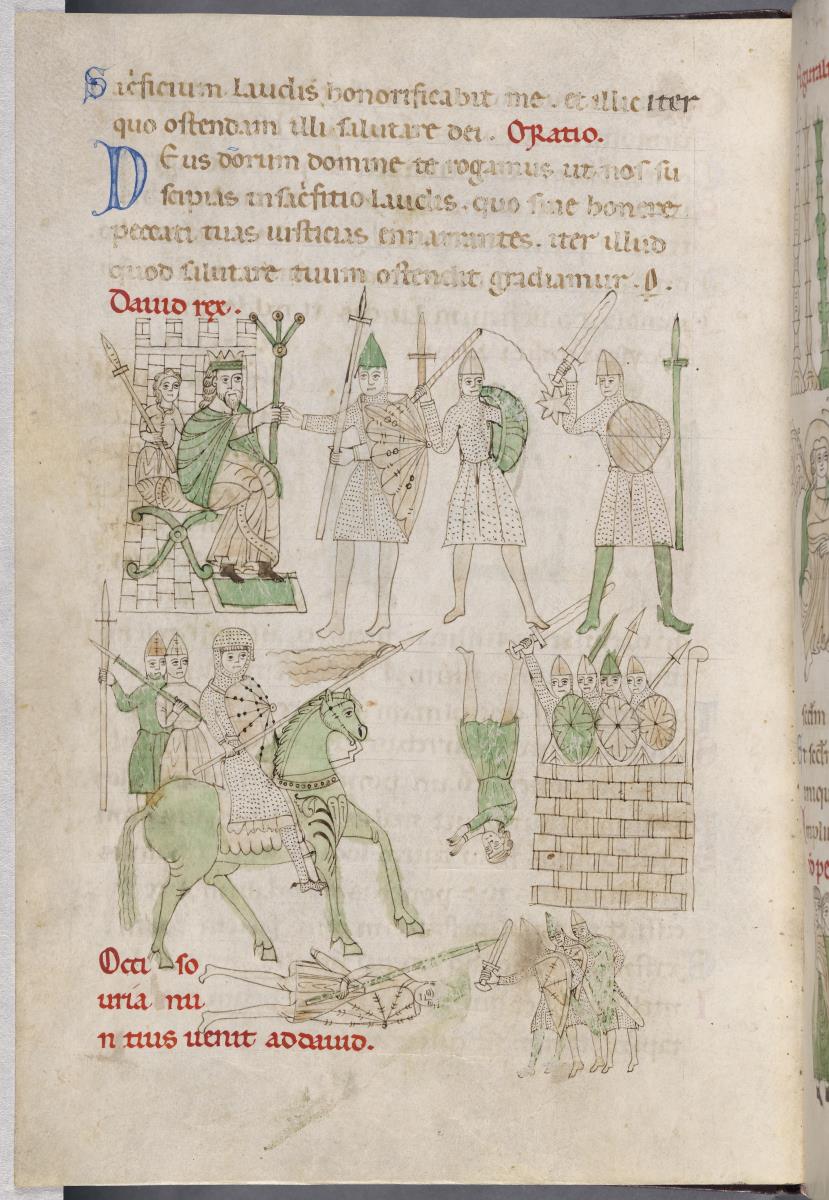 Sac̄ficium laudis honorificabit me. et illic iter
quo ostendam illi salutare dei. Oratio.
Deus dōrum domine te rogamus ut nos su
scipias in sac̄fitio laudis. quo sine honere
peccati tuas iusticias ennarrantes. iter illud
quod salutare tuum ostendit gradiamur. P.
Dauid rex.
Occi so
uria nu
n tius uenit ad dauid.